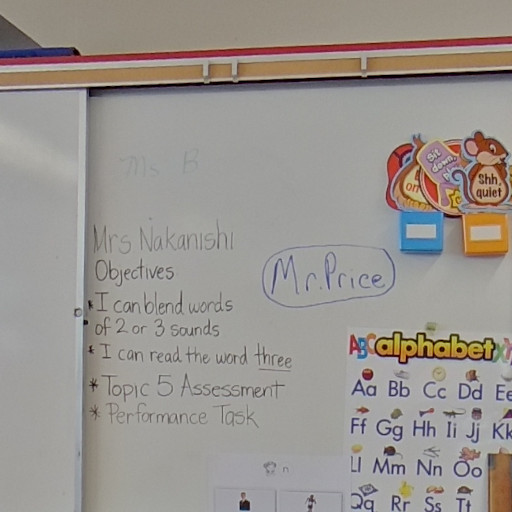 Ms B
Mrs Nakanishi
Objectives
* I can blend words
of 2 or 3 sounds
* I can read the word three
* Topic 5 Assessment
* Performance Task
Mr. Price
Sit
down,
on
Shh,
quiet
ABC alphabet
Aa Bb Cc Dd Ee
Ff Gg Hh Ii Jj Kk
Ll Mm Nn Oo
Qq Rr Ss Tt
n